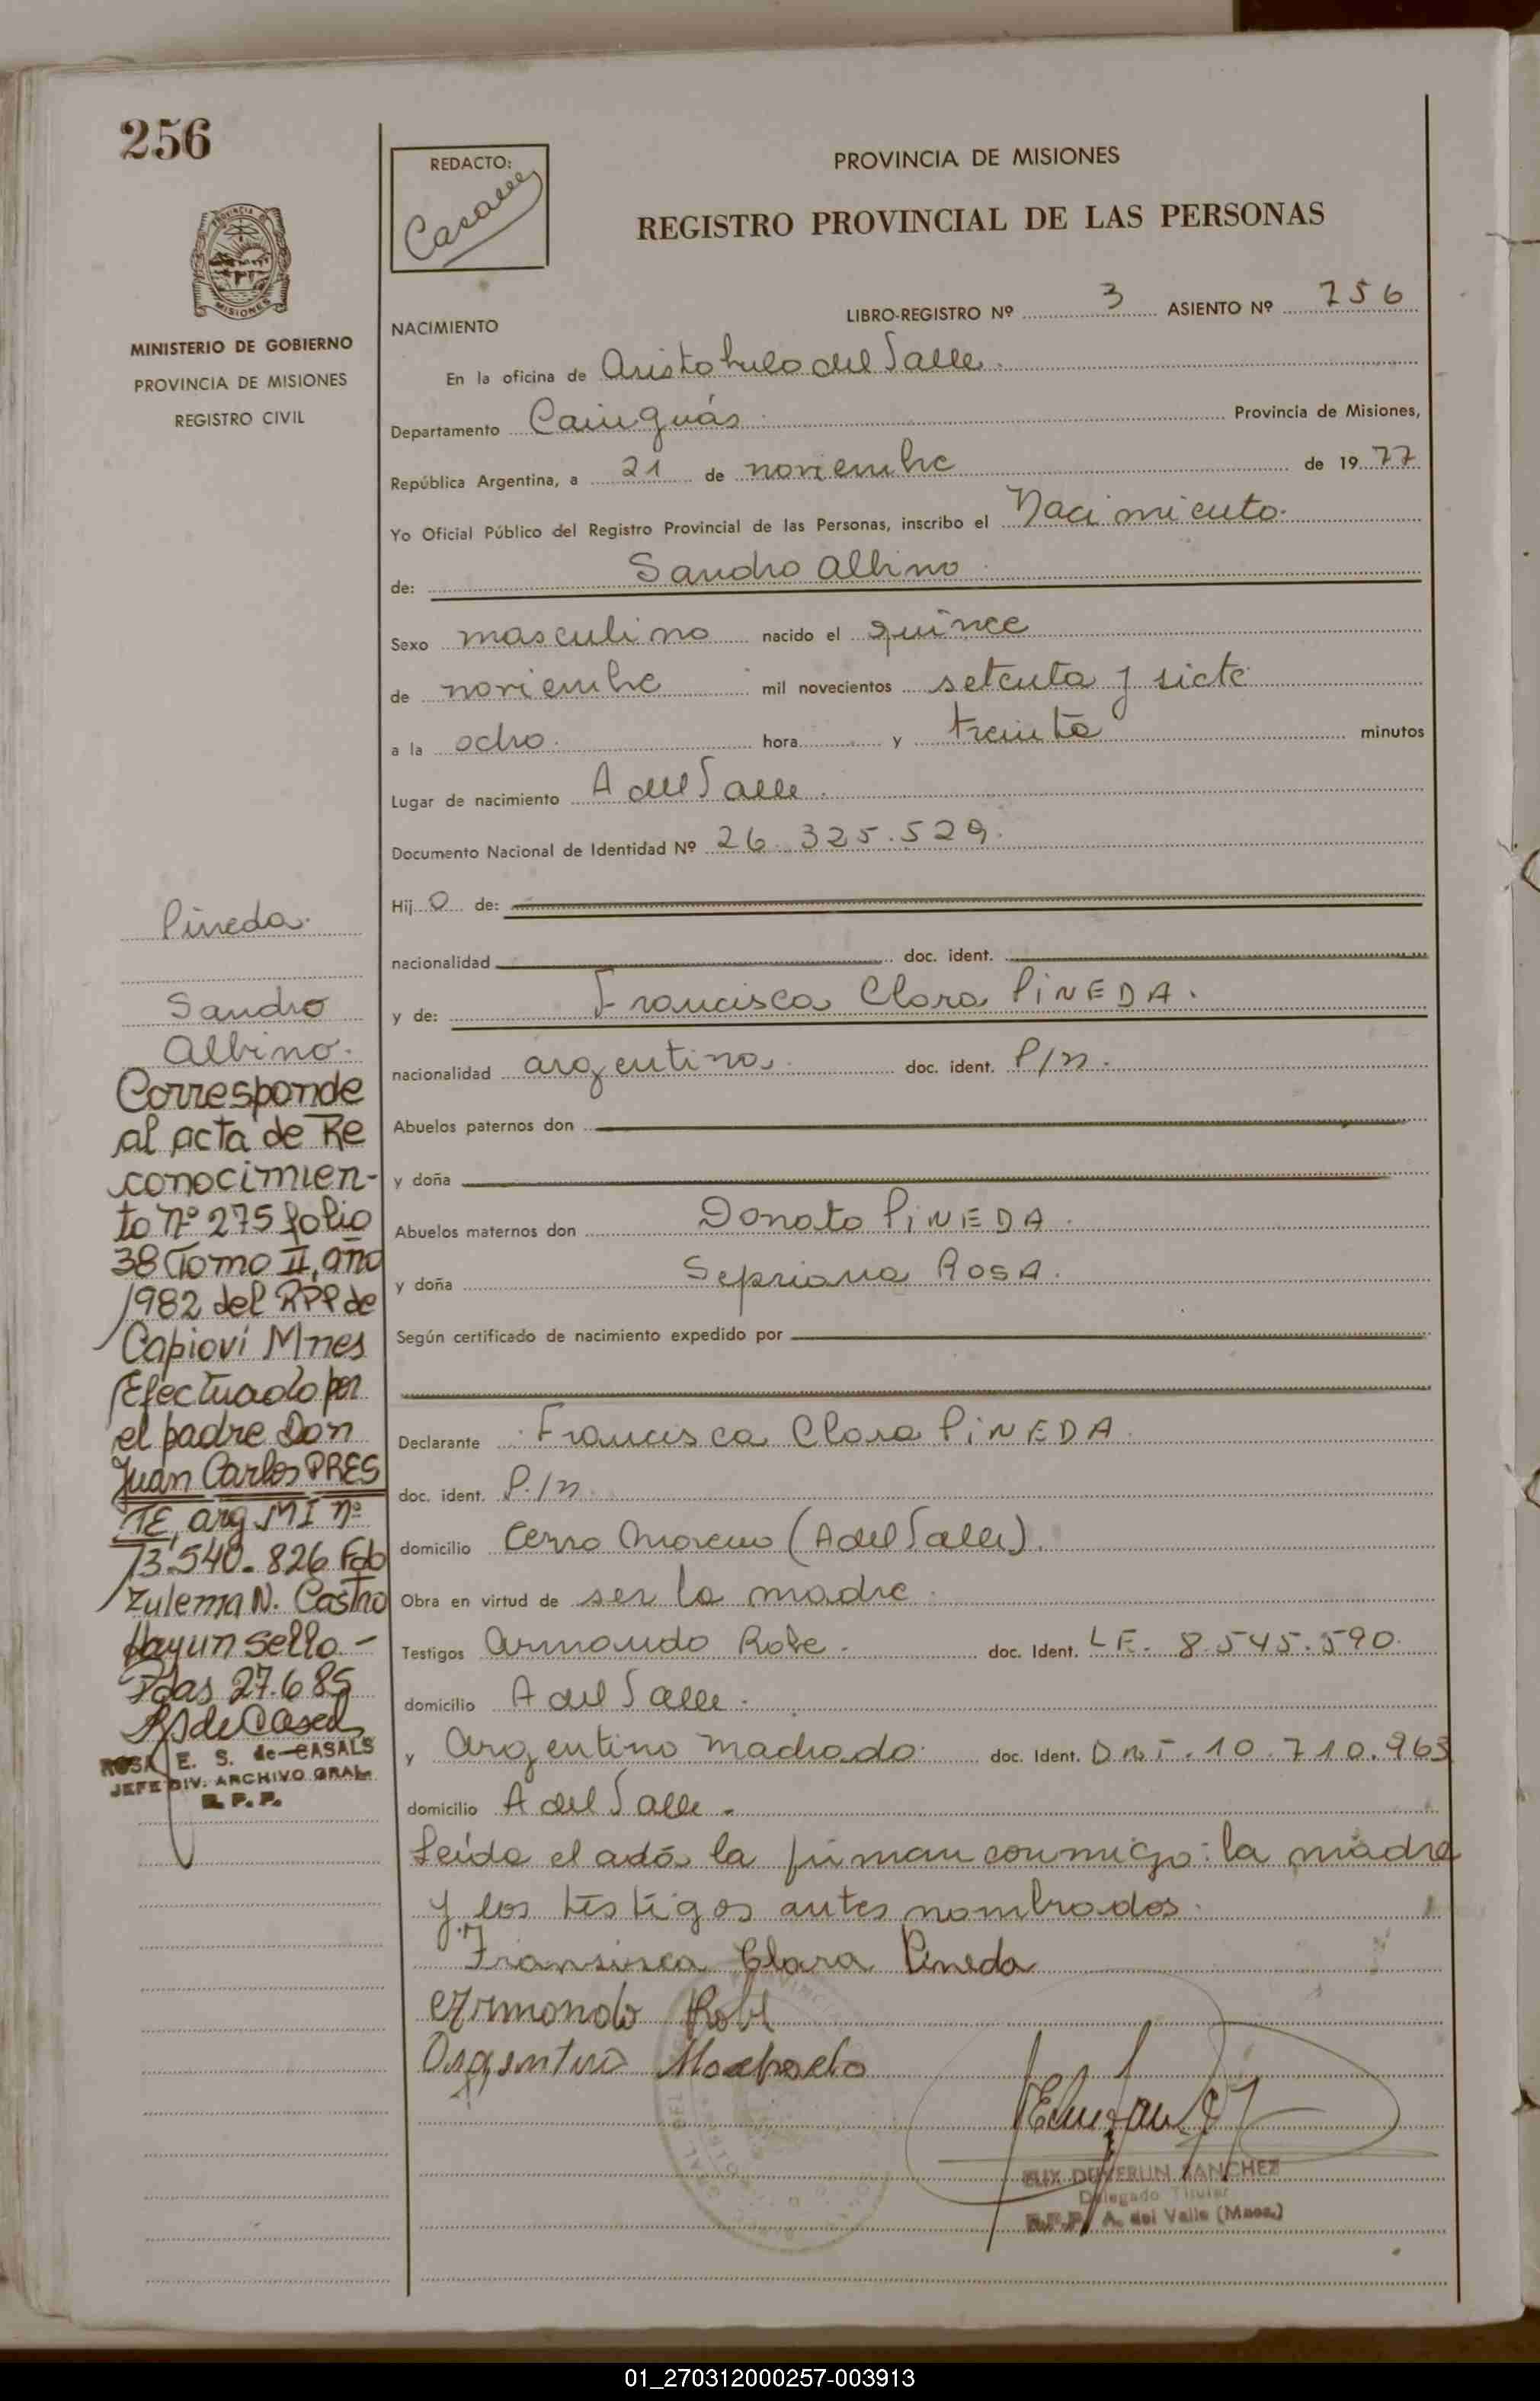 256
REDACTO:
Casals
PROVINCIA DE MISIONES
REGISTRO PROVINCIAL DE LAS PERSONAS
MISIONES
MINISTERIO DE GOBIERNO
PROVINCIA DE MISIONES
REGISTRO CIVIL
NACIMIENTO
LIBRO-REGISTRO Nº 3 ASIENTO Nº 756
En la oficina de Aristobulo del Valle.
Departamento Cainguás. Provincia de Misiones,
República Argentina, a 21 de noviembre de 1977
Yo Oficial Público del Registro Provincial de las Personas, inscribo el Nacimiento.
de: Sandro Albino.
Sexo masculino nacido el quince
de noviembre mil novecientos setenta y siete.
a la ocho. hora y treinta minutos
Lugar de nacimiento A del Valle.
Documento Nacional de Identidad Nº 26.325.529.
Hij o de:
nacionalidad doc. ident.
y de: Francisca Clara PiNEDA.
nacionalidad argentina. doc. ident. P/n.
Abuelos paternos don
y doña
Abuelos maternos don Donato PiNEDA.
y doña Sepriana ROSA.
Según certificado de nacimiento expedido por
Declarante Francisca Clara PiNEDA.
doc. ident. P./n.
domicilio Cerro Moreno (A del Valle).
Obra en virtud de ser la madre.
Testigos Armando Robe. doc. Ident. L E. 8.545.590.
domicilio A del Valle.
y Argentino Machado. doc. Ident. D N I. 10.710.963
domicilio A del Valle.
Leída el acta la firman conmigo: la madre
y los testigos antes nombrados.
Fransisca Clara Pineda
Armondo
Argentino Machado
Sanchez
DELFERLIN SANCHEZ
Delegado Titular
R.P.P. A. del Valle (Mnes.)
Pineda.
Sandro
Albino.
Corresponde
al acta de Re
conocimien-
to Nº 275 folio
38 Tomo II, año
1982 del RPP de
Capioví Mnes
Efectuado por
el padre Don
Juan Carlos PRES
TE, arg MI nº
13.540.826 Fdo
Zulema N. Castro
Hay un sello.-
Pdas 27.6.85
RS de Casals
ROSA E. S. de CASALS
JEFE DIV. ARCHIVO GRAL.
R. P. P.
01_270312000257-003913